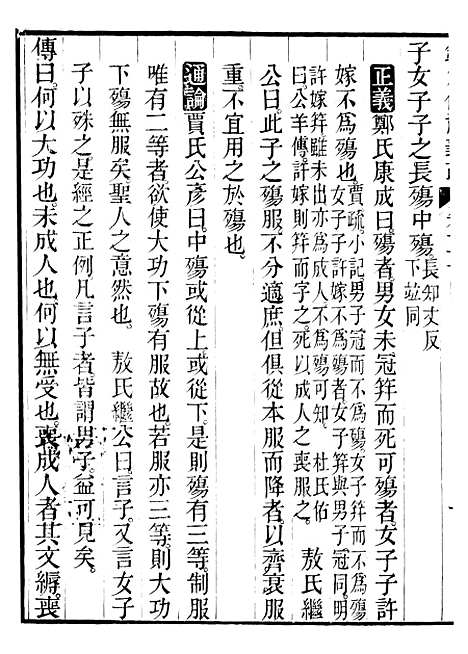 子女子子之長殤中殤長知丈反下並同
正義鄭氏康成曰。殤者。男女未冠筓而死可殤者。女子子許
嫁不為殤也。賈疏。小記男子冠而不為殤。女子筓而不為殤。女子子許嫁不為殤者。女子筓與男子冠同。明
許嫁筓。雖未出。亦為成人不為殤可知。 杜氏佑曰。公羊傳。許嫁則筓而字之。死以成人之喪服之。 敖氏繼
公曰。此子之殤服。不分適庶。但俱從本服而降者。以齊衰服
重。不宜用之於殤也。
通論賈氏公彥曰。中殤或從上。或從下。是則殤有三等。制服
唯有二等者。欲使大功下殤有服故也。若服亦三等。則大功
下殤無服矣。聖人之意然也。 敖氏繼公曰。言子。又言女子
子以殊之。是經之正例。凡言子者。皆謂男子。益可見矣。
傳曰。何以大功也。未成人也。何以無受也。喪成人者其文縟。喪